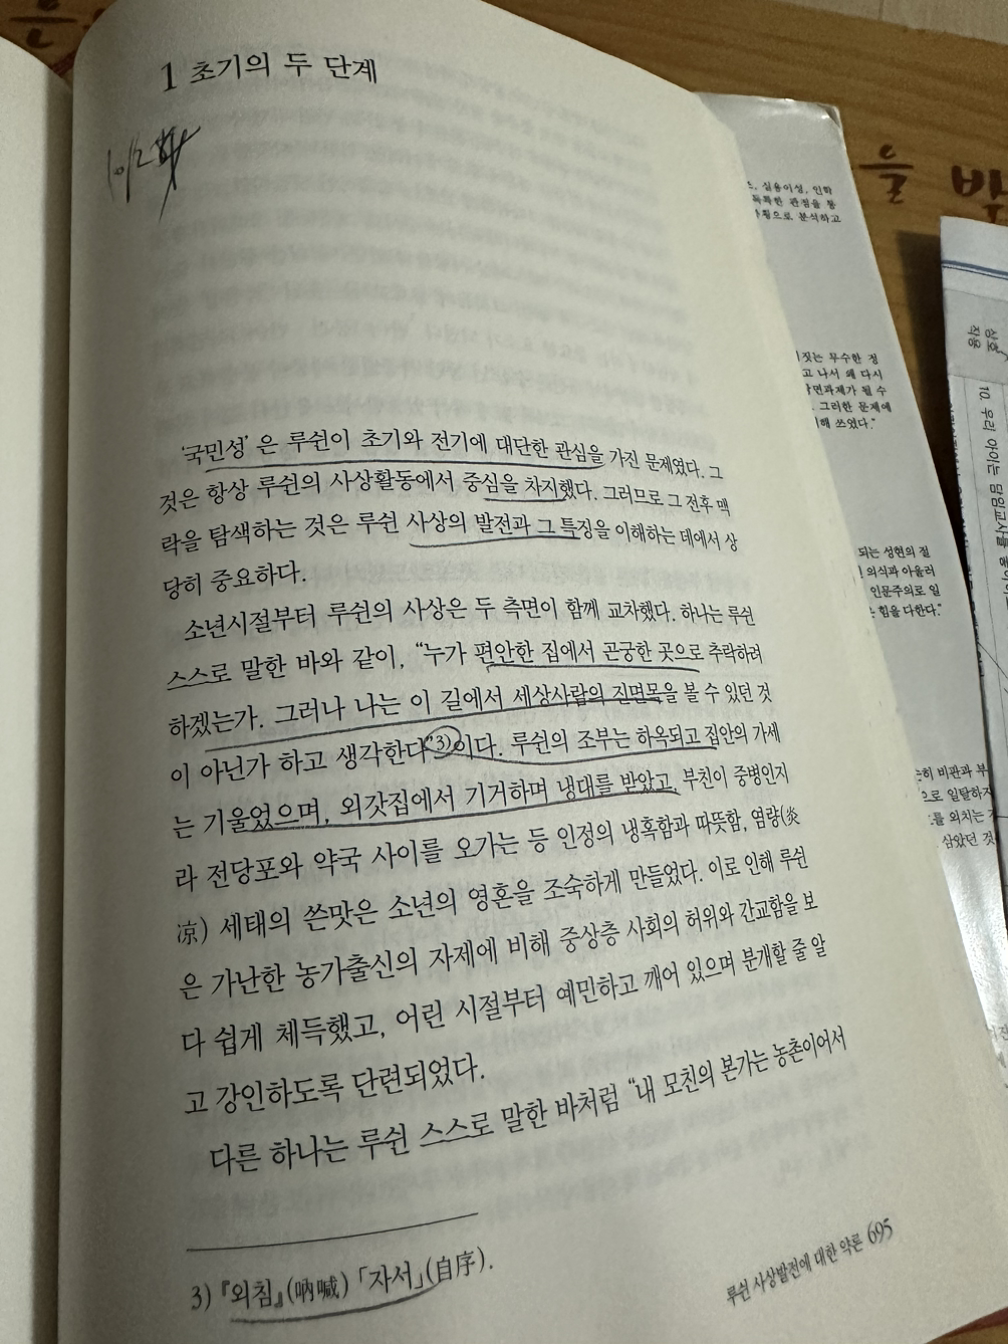 1 초기의 두 단계
'국민성'은 루쉰이 초기와 전기에 대단한 관심을 가진 문제였다. 그
것은 항상 루쉰의 사상활동에서 중심을 차지했다. 그러므로 그 전후 맥
락을 탐색하는 것은 루쉰 사상의 발전과 그 특징을 이해하는 데에서 상
당히 중요하다.
소년시절부터 루쉰의 사상은 두 측면이 함께 교차했다. 하나는 루쉰
스스로 말한 바와 같이, "누가 편안한 집에서 곤궁한 곳으로 추락하려
하겠는가. 그러나 나는 이 길에서 세상사람의 진면목을 볼 수 있던 것
이 아닌가 하고 생각한다"3)이다. 루쉰의 조부는 하옥되고 집안의 가세
는 기울었으며, 외갓집에서 기거하며 냉대를 받았고, 부친이 중병인지
라 전당포와 약국 사이를 오가는 등 인정의 냉혹함과 따뜻함, 염량(炎
凉) 세태의 쓴맛은 소년의 영혼을 조숙하게 만들었다. 이로 인해 루쉰
은 가난한 농가출신의 자제에 비해 중상층 사회의 허위와 간교함을 보
다 쉽게 체득했고, 어린 시절부터 예민하고 깨어 있으며 분개할 줄 알
고 강인하도록 단련되었다.
다른 하나는 루쉰 스스로 말한 바처럼 "내 모친의 본가는 농촌이어서
3) 『외침』(吶喊) 「자서」(自序).
루쉰 사상발전에 대한 약론 695
실용이성, 인학
독특한 관점을 통
으로 분석하고
짓는 무수한 정
고 나서 왜 다시
면과제가 될 수
그러한 문제에
해 쓰였다."
되는 성현의 절
의식과 아울러
인문주의로 일
힘을 다한다."
히 비관과 부
으로 일탈하지
를 외치는
삼았던 것
을
상호
작용
10. 우리 아이는 담임교사를